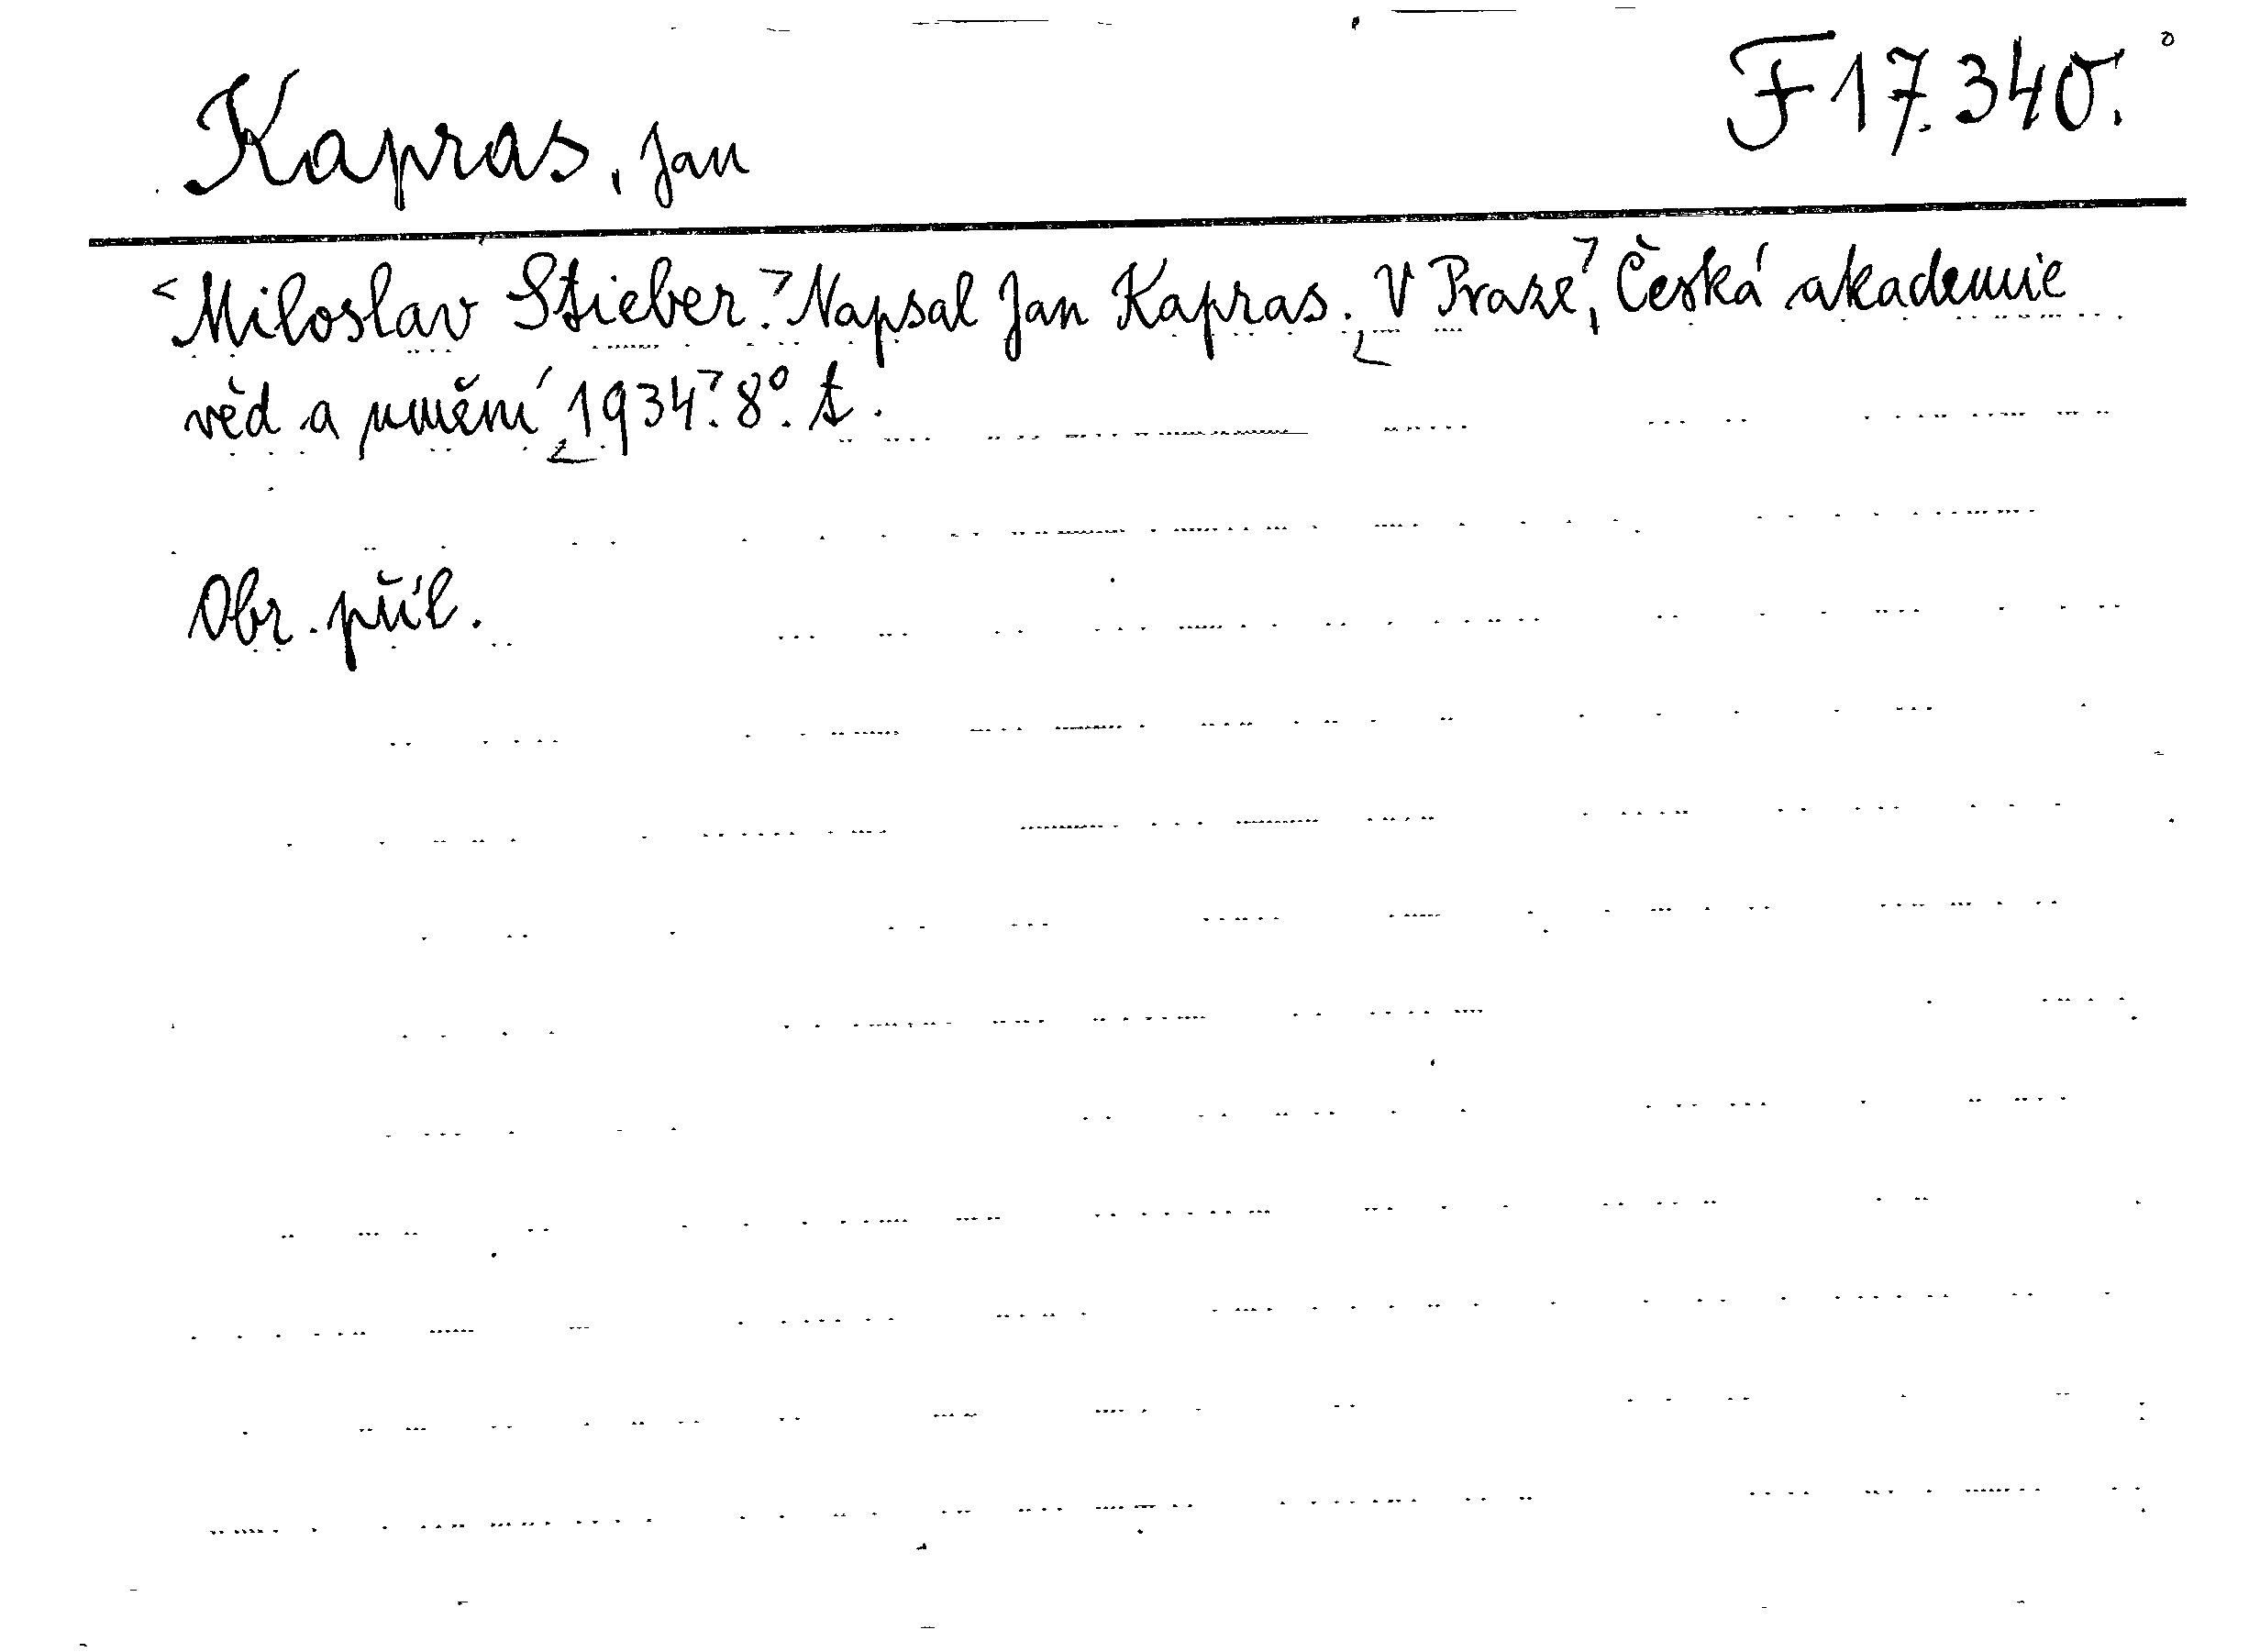 Kapras, Jan
F 17.340.
<Miloslav Stieber.> Napsal Jan Kapras. V Praze, Česká akademie
věd a umění 1934. 8°. t.
Obr. příl.